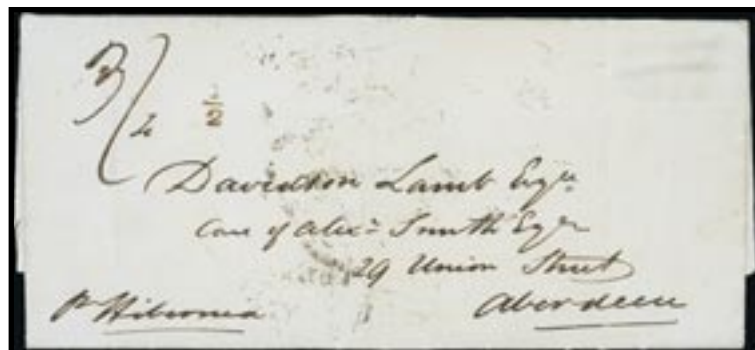 3/2
1/2
Davidson Lamb Esqre
Care of Alexr Smith Esqr
29 Union Street
Aberdeen
pr Hibernia